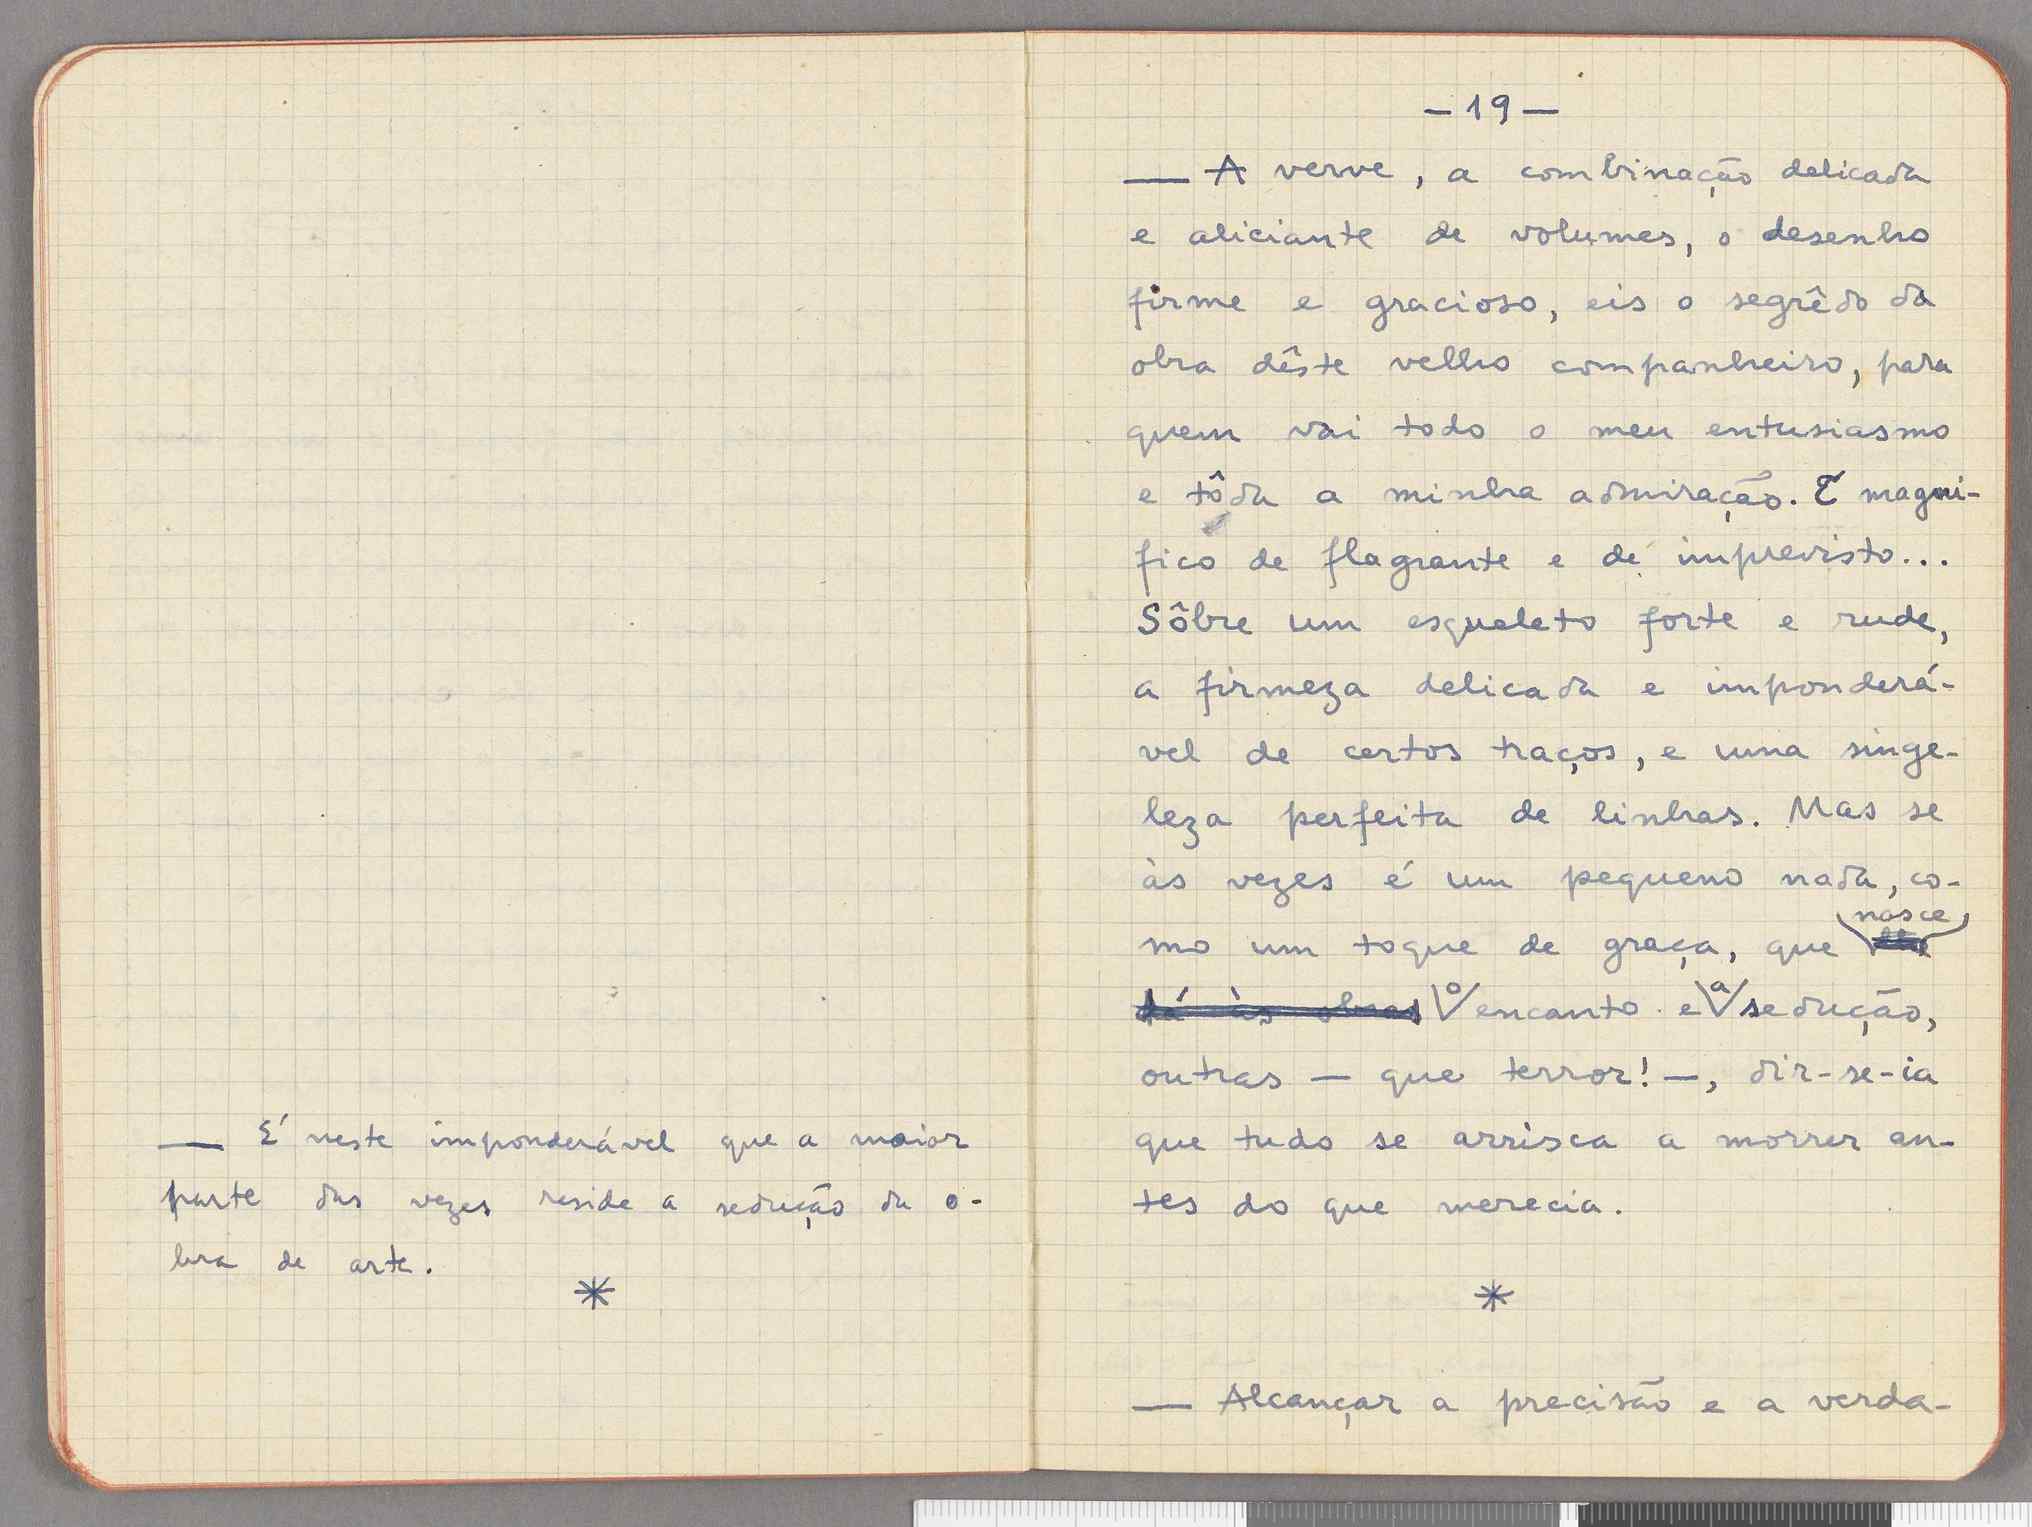 — É neste imponderável que a maior
parte das vezes reside a sedução da o-
bra de arte.
*
— 19 —
— A verve, a combinação delicada
e aliciante de volumes, o desenho
firme e gracioso, eis o segrêdo da
obra dêste velho companheiro, para
quem vai todo o meu entusiasmo
e tôda a minha admiração. É magni-
fico de flagrante e de imprevisto...
Sôbre um esqueleto forte e rude,
a firmeza delicada e imponderá-
vel de certos traços, e uma singe-
leza perfeita de linhas. Mas se
às vezes é um pequeno nada, co-
mo um toque de graça, que nasce
dá às obras o encanto e a sedução,
outras — que terror! —, dir-se-ia
que tudo se arrisca a morrer an-
tes do que merecia.
*
— Alcançar a precisão e a verda-